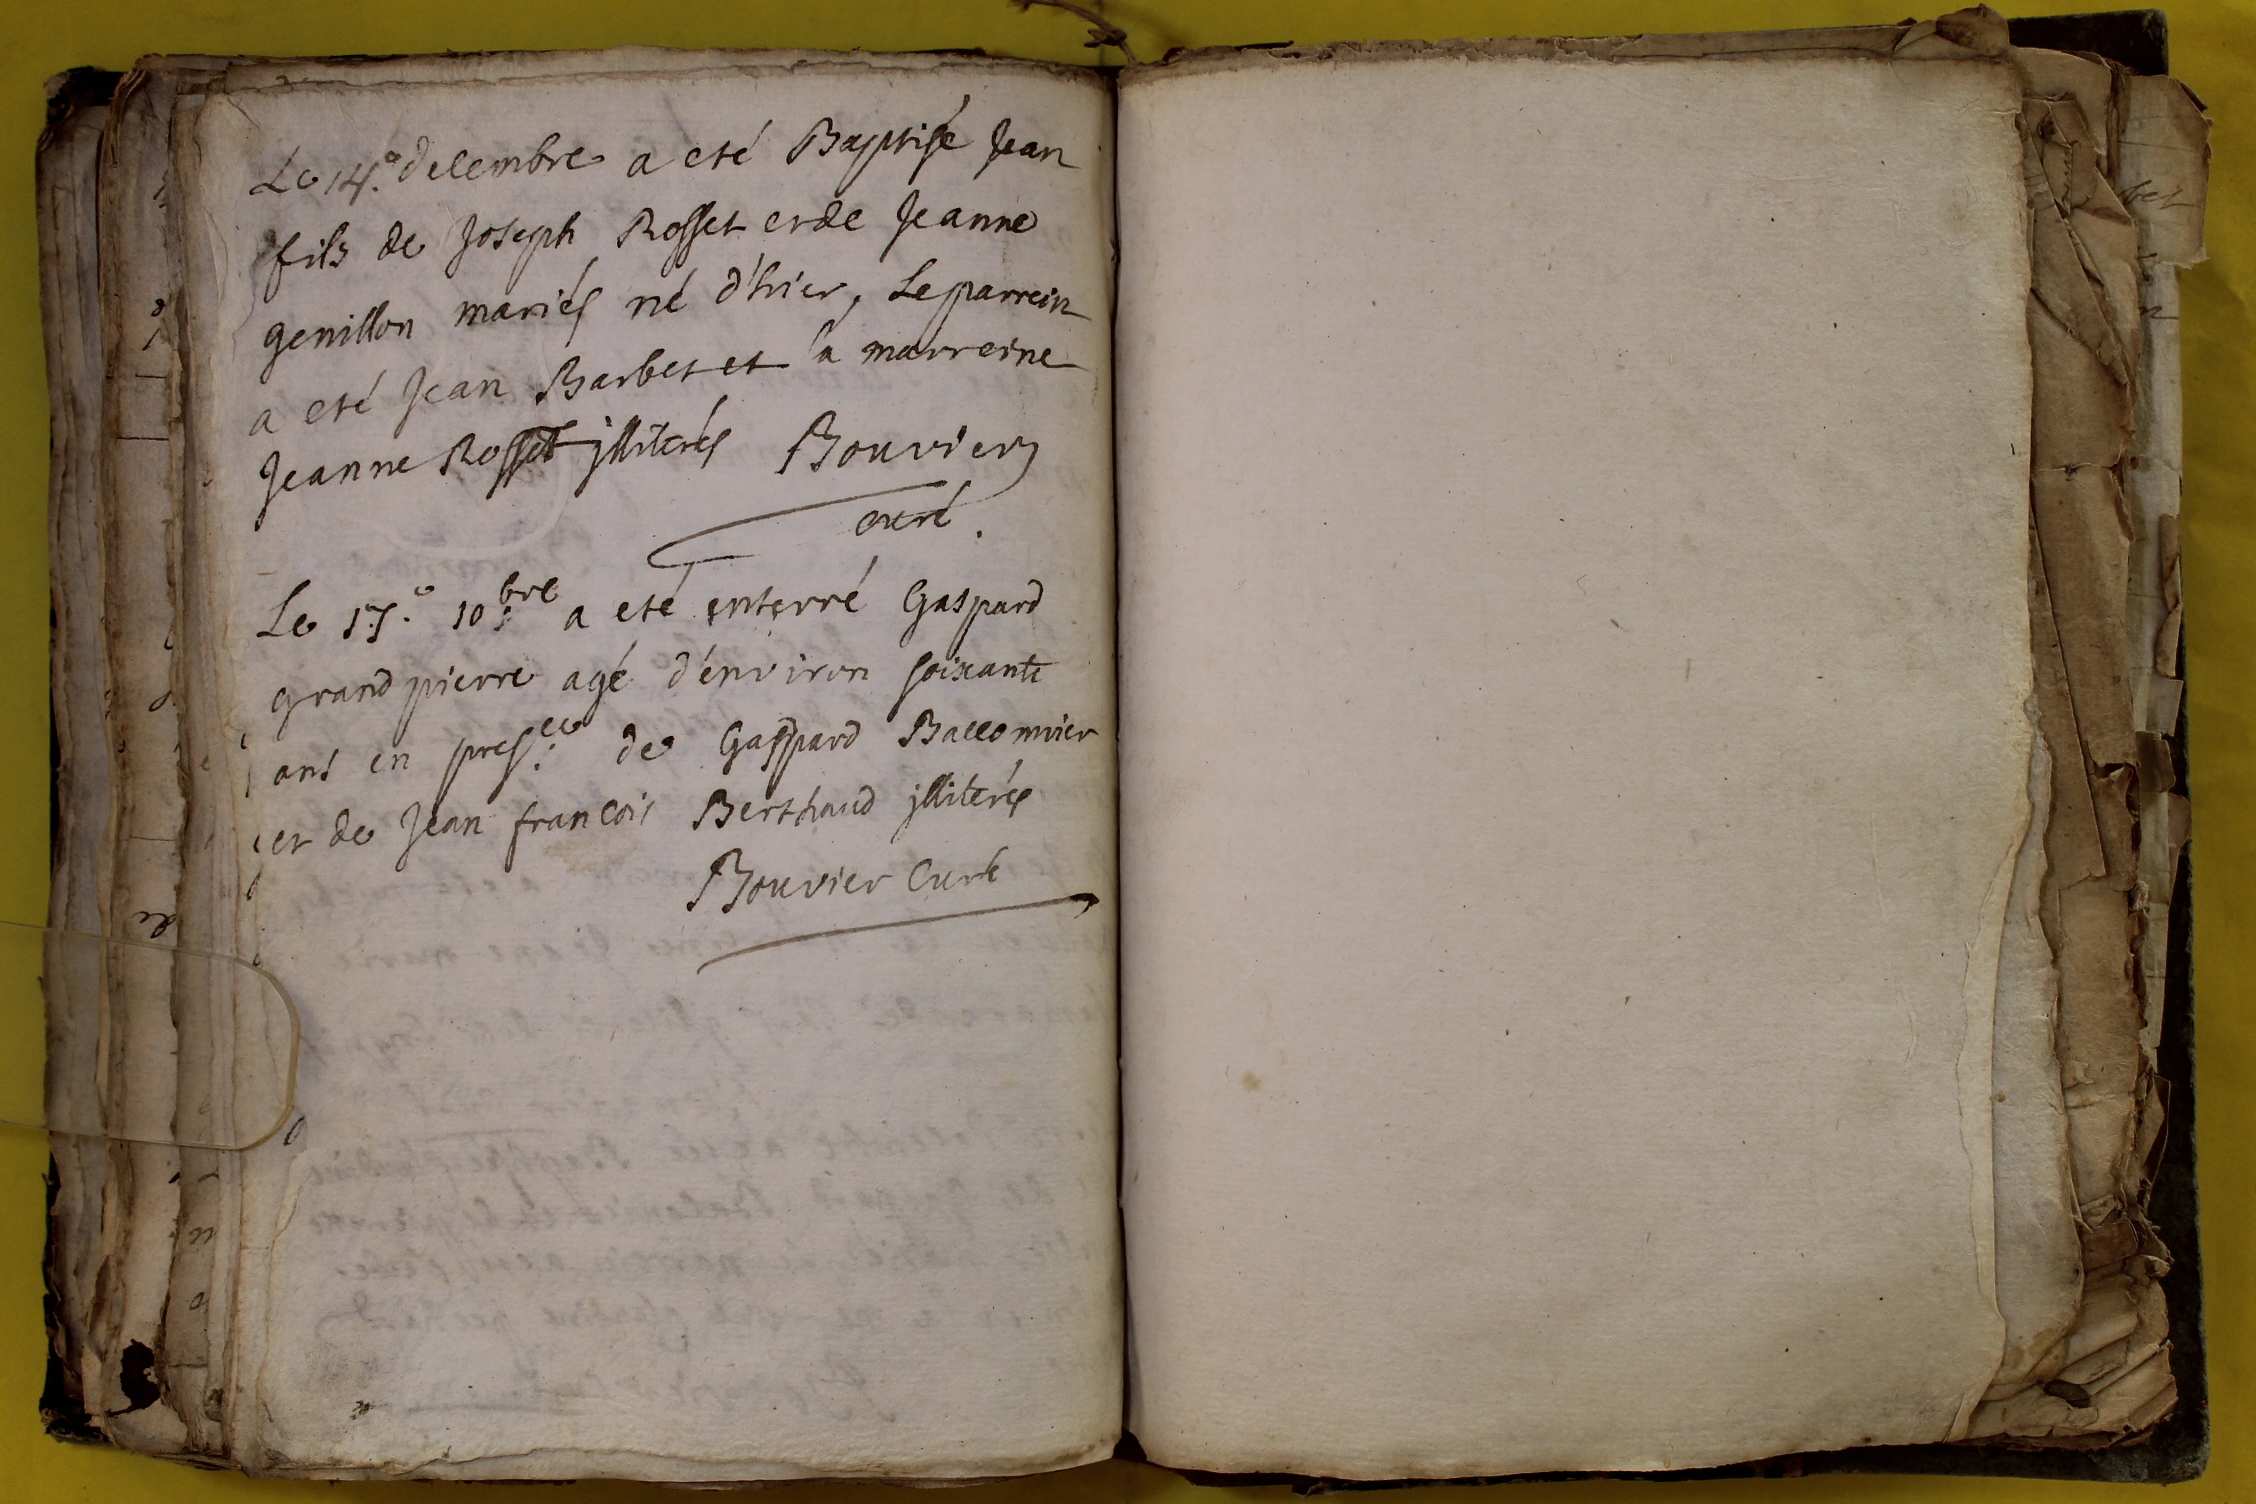 Le 14.e decembre a eté Baptisé Jean
fils de Joseph Rosset et de Jeanne
genillon mariés né d'hier, Le parrein
a eté Jean Barbet et la marreine
Jeanne Rosset jlliterés Bouvier
curé.
Le 17.e 10.bre a eté enterré Gaspard
grandpierre agé d'environ soixante
ans en pres.ce de Gaspard Baccomnier
et de Jean francois Berthaud jlliterés
Bouvier Curé